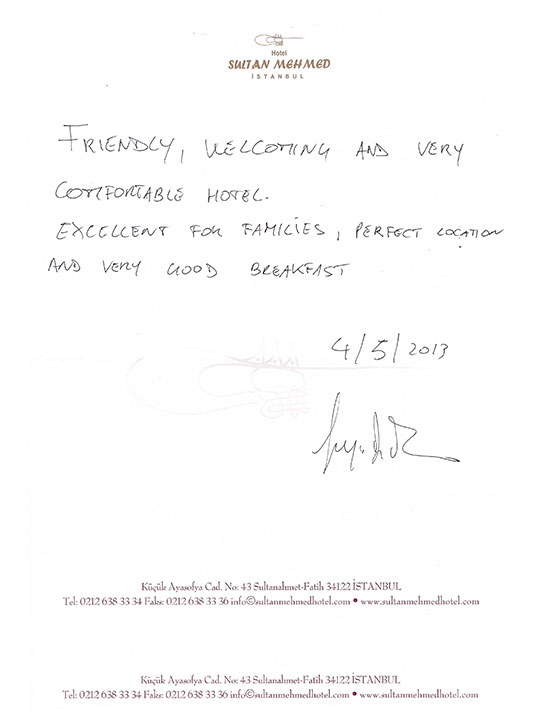 Hotel
SULTAN MEHMED
İSTANBUL
FRIENDLY, WELCOMING AND VERY
COMFORTABLE HOTEL.
EXCELLENT FOR FAMILIES, PERFECT LOCATION
AND VERY GOOD BREAKFAST
4/5/2013
Küçük Ayasofya Cad. No: 43 Sultanahmet-Fatih 34122 İSTANBUL
Tel: 0212 638 33 34 Faks: 0212 638 33 36 info@sultanmehmedhotel.com • www.sultanmehmedhotel.com
Küçük Ayasofya Cad. No: 43 Sultanahmet-Fatih 34122 İSTANBUL
Tel: 0212 638 33 34 Faks: 0212 638 33 36 info@sultanmehmedhotel.com • www.sultanmehmedhotel.com